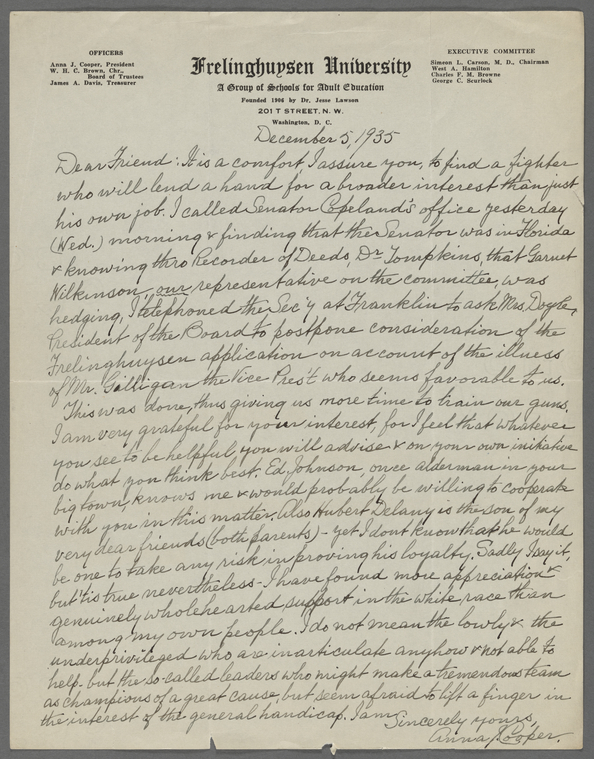 OFFICERS
Anna J. Cooper, President
W. H. C. Brown, Chr.,
Board of Trustees
James A. Davis, Treasurer
Frelinghuysen University
A Group of Schools for Adult Education
Founded 1906 by Dr. Jesse Lawson
201 T STREET, N. W.
Washington, D. C.
EXECUTIVE COMMITTEE
Simeon L. Carson, M. D., Chairman
West A. Hamilton
Charles F. M. Browns
George C. Scurlock
December 5, 1935
Dear Friend: It is a comfort I assure you, to find a fighter
who will lend a hand for a broader interest than just
his own job. I called Senator Copeland's office yesterday
(Wed.) morning & finding that the Senator was in Florida
& knowing thro Recorder of Deeds, Dr Tompkins, that Garnet
Wilkinson, our representative on the committee, was
hedging, I telephoned the Sec'y at Franklin to ask Mrs. Doyle,
President of the Board to postpone consideration of the
Frelinghuysen application on account of the illness
of Mr. Gilligan the Vice Pres't who seems favorable to us.
This was done, thus giving us more time to train our guns.
I am very grateful for your interest, for I feel that whatever
you see to be helpful, you will advise & on your own initiative
do what you think best. Ed. Johnson, once alderman in your
big town, knows me & would probably be willing to cooperate
with you in this matter. Also Hubert Delany is the son of my
very dear friends (both parents) - yet I dont know that he would
be one to take any risk in proving his loyalty. Sadly I say it,
but 'tis true nevertheless - I have found more appreciation &
genuinely wholehearted support in the white race than
among my own people. I do not mean the lowly & the
underprivileged who are inarticulate anyhow & not able to
help - but the so-called leaders who might make a tremendous team
as champions of a great cause, but seem afraid to lift a finger in
the interest of the general handicap. I am
Sincerely yours,
Anna J. Cooper.